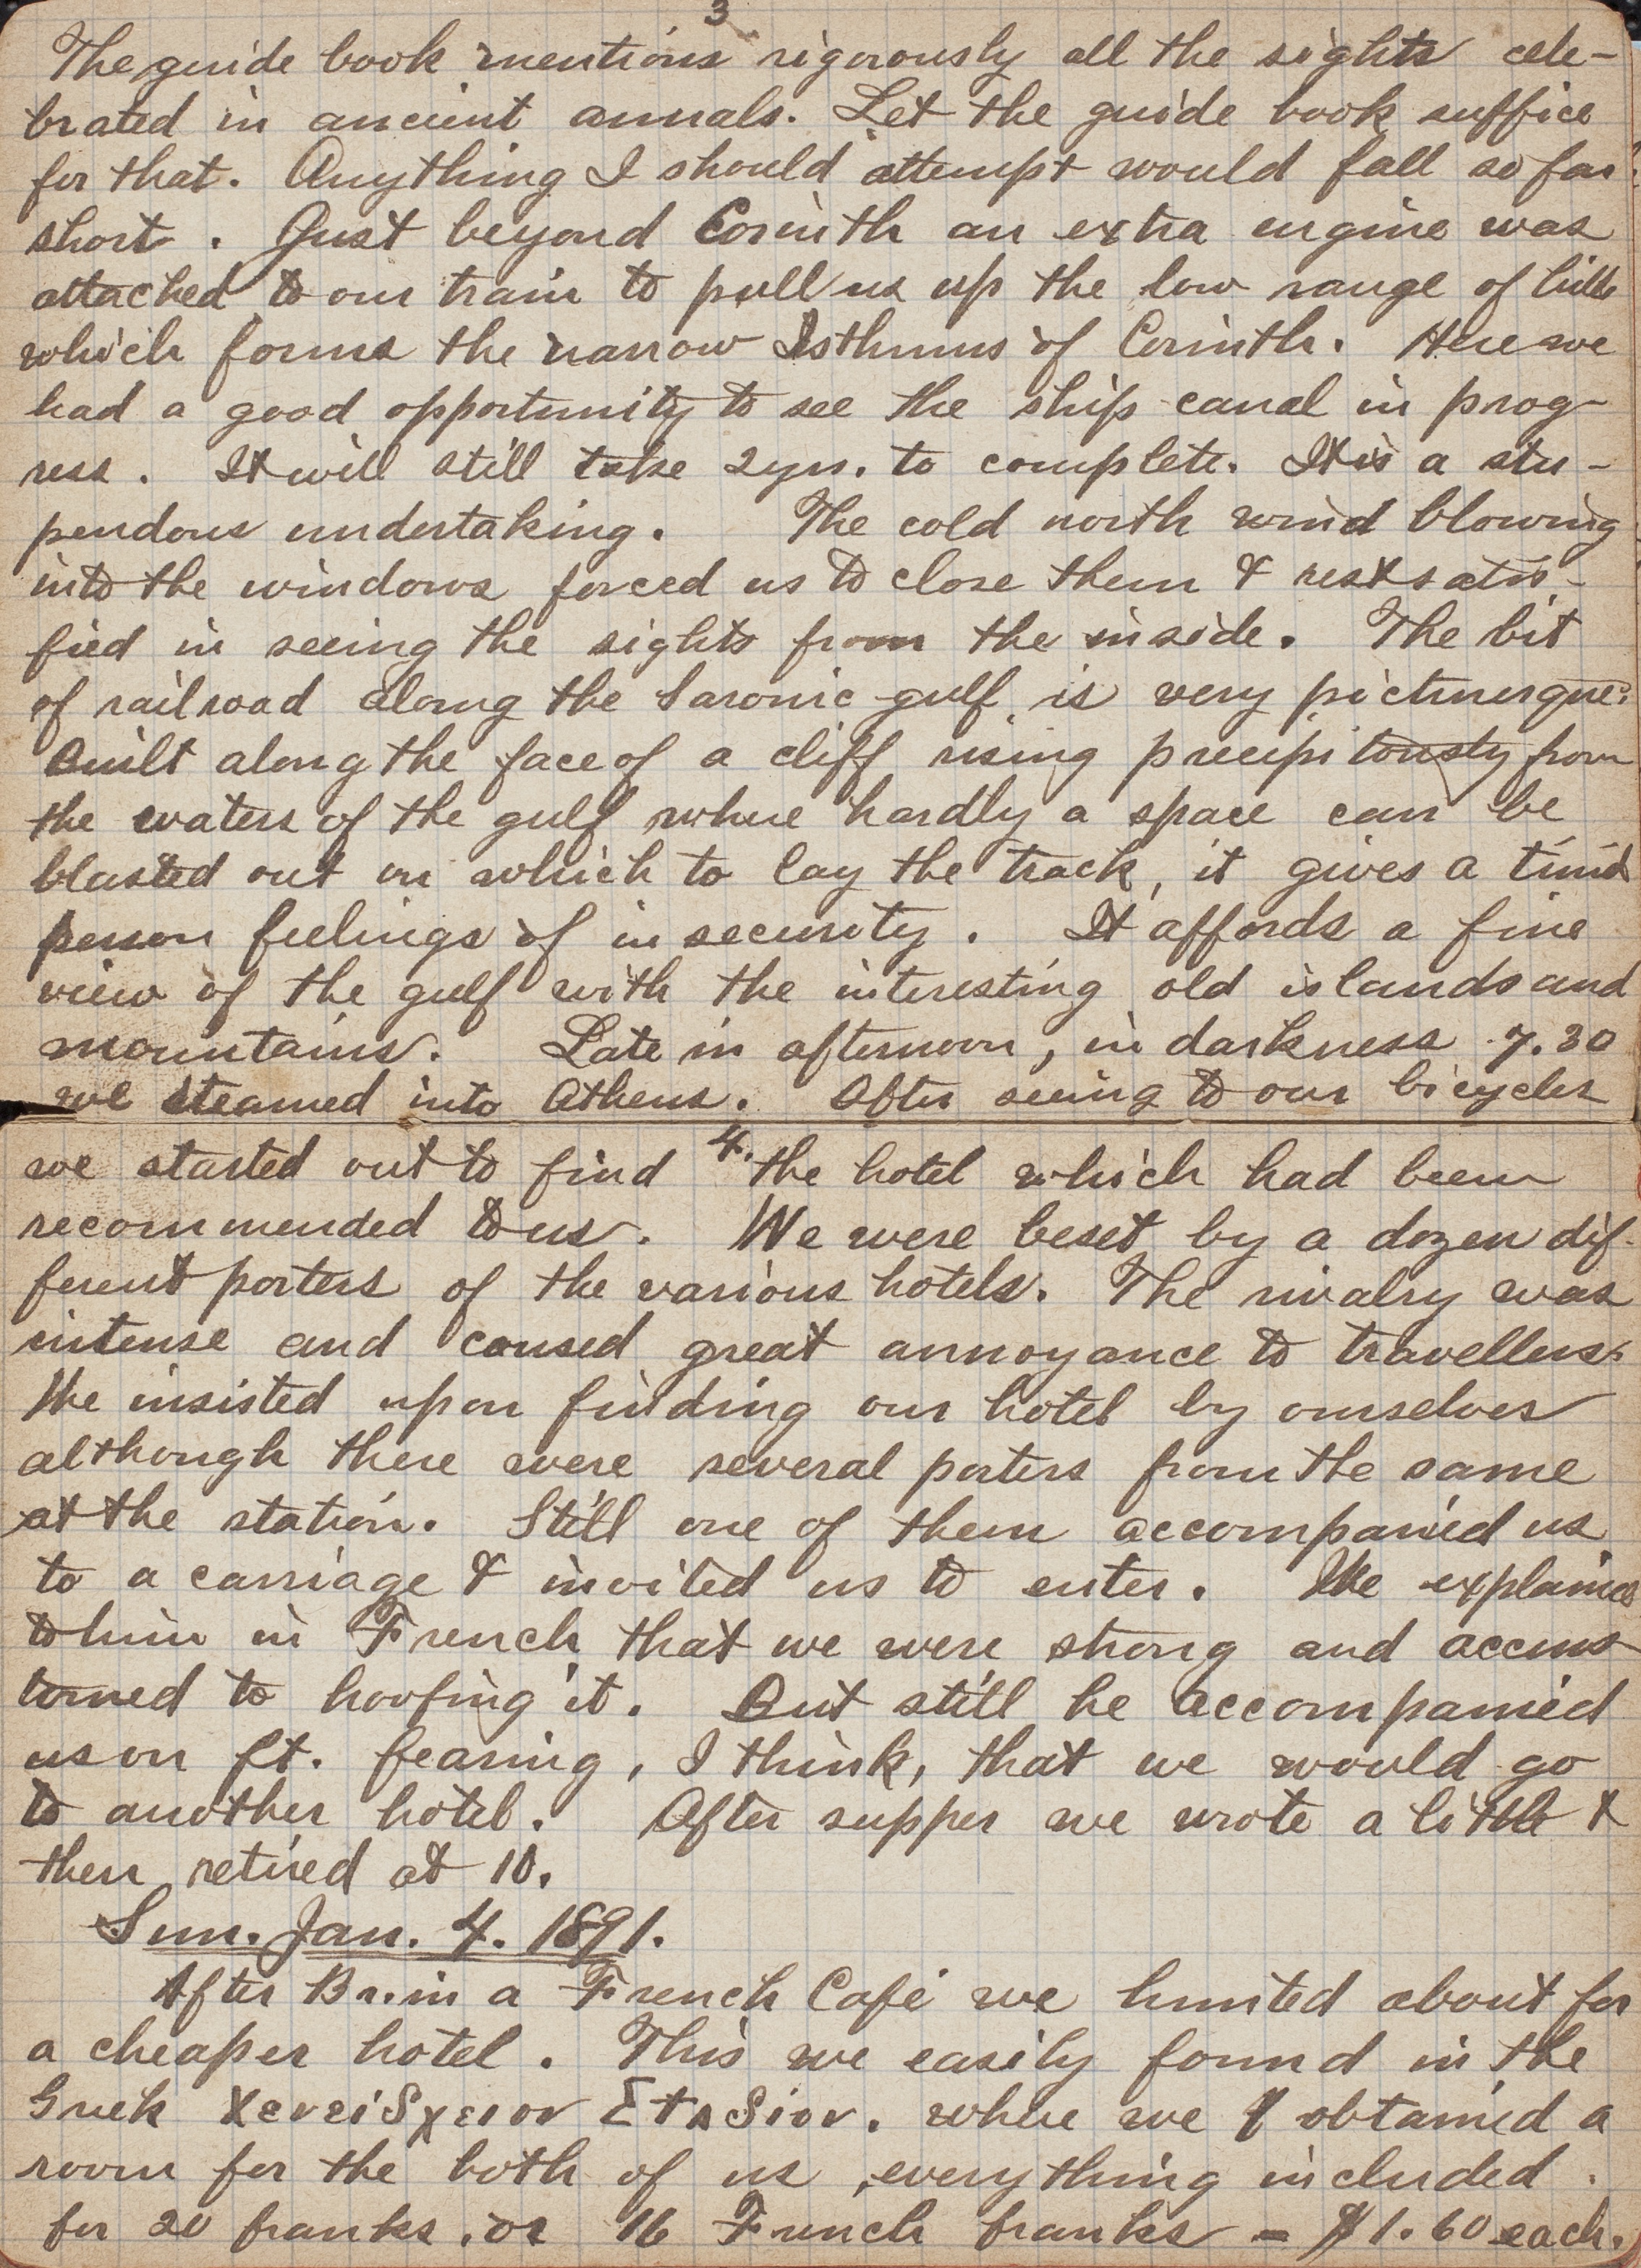 3
The guide book mentions rigorously all the sights cele-
brated in ancient annals. Let the guide book suffice
for that. Anything I should attempt would fall so far
short. Just beyond Corinth an extra engine was
attached to our train to pull us up the low range of hills
which forms the narrow Isthmus of Corinth. Here we
had a good opportunity to see the ship canal in prog-
ress. It will still take 2 yrs. to complete. It is a stu-
pendous undertaking. The cold north wind blowing
into the windows forced us to close them & rest satis-
fied in seeing the sights from the inside. The bit
of railroad along the Saronic gulf is very picturesque.
Built along the face of a cliff rising precipitously from
the waters of the gulf where hardly a space can be
blasted out on which to lay the track, it gives a timid
person feelings of insecurity. It affords a fine
view of the gulf with the interesting old islands and
mountains. Late in afternoon, in darkness 7.30
we steamed into Athens. After seeing to our bicycles
4.
we started out to find the hotel which had been
recommended to us. We were beset by a dozen dif-
ferent porters of the various hotels. The rivalry was
intense and caused great annoyance to travellers.
We insisted upon finding our hotel by ourselves
although there were several porters from the same
at the station. Still one of them accompanied us
to a carriage & invited us to enter. We explained
to him in French that we were strong and accus-
tomed to hoofing it. But still he accompanied
us on ft. fearing, I think, that we would go
to another hotel. After supper we wrote a little &
then retired at 10.
Sun. Jan. 4. 1891.
After Br. in a French Café we hunted about for
a cheaper hotel. This we easily found in the
Greek Σταδιον. where we obtained a
room for the both of us, everything included.
for 20 franks. or 16 French franks = $1.60 each.